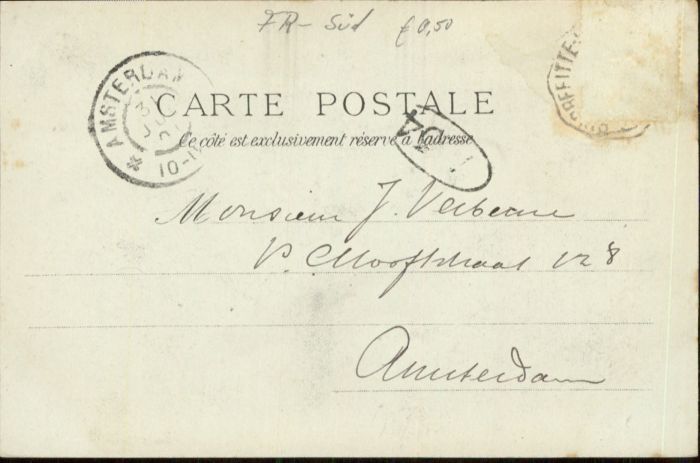 FR- Süd £ 0,50
AMSTERDAM
CARTE POSTALE
Ce côté est exclusivement réservé à l'adresse
Monsieur J. Verbeeme
P. C. Hooftstraat 128
Amsterdam